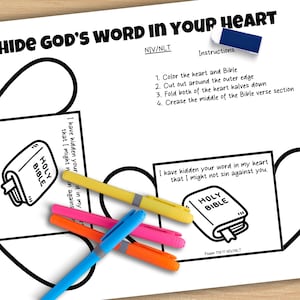 HIDE GOD'S WORD IN YOUR HEART
NIV/NLT
Instructions
1. Color the heart and Bible
2. Cut out around the outer edge
3. Fold both of the heart halves down
4. Crease the middle of the Bible verse section
I have hidden your word in my
that I might
against
HOLY
BIBLE
I have hidden your word in my heart
that I might not sin against you.
HOLY
BIBLE
Psalm 119:11 NIV/NLT